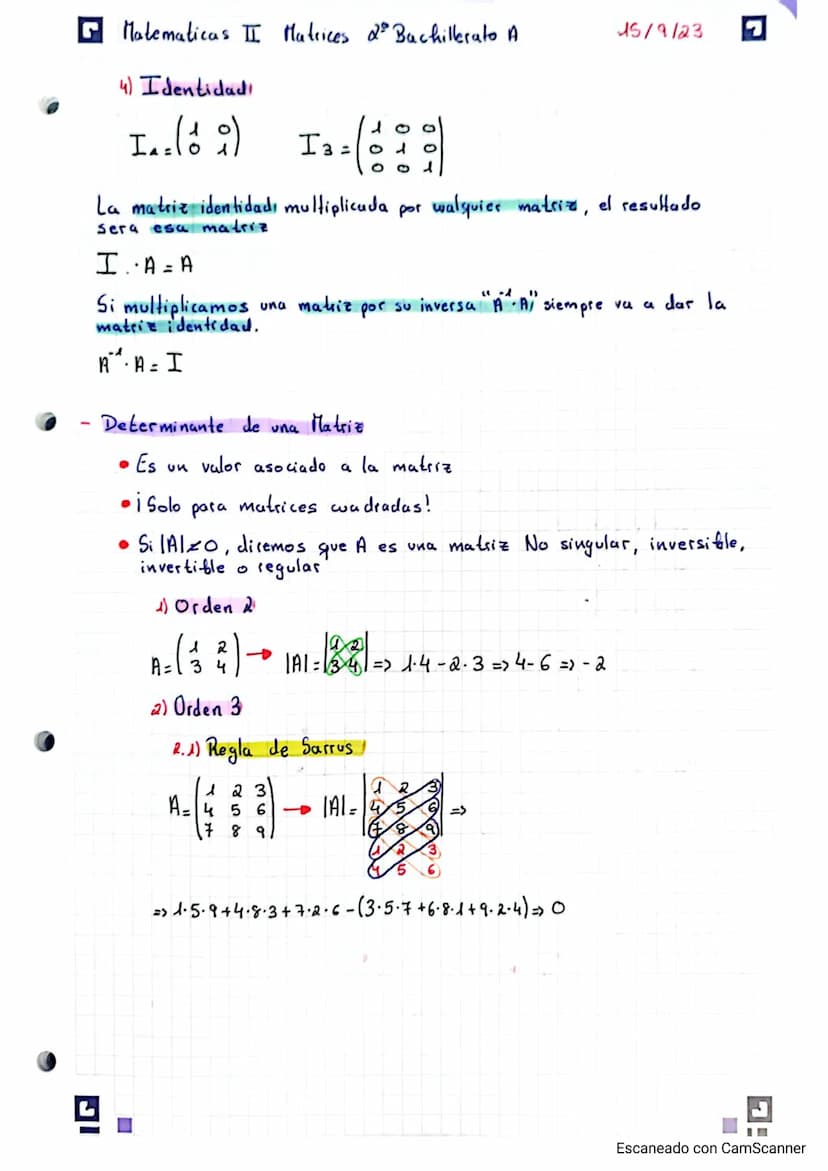 Matematicas II Matrices 2º Bachillerato A 15/9/23
4) Identidad
I₂ = (1 0; 0 1) I₃ = (1 0 0; 0 1 0; 0 0 1)
La matriz identidad multiplicada por cualquier matriz, el resultado
sera esa matriz
I · A = A
Si multiplicamos una matriz por su inversa "A⁻¹·A" siempre va a dar la
matriz identidad.
A⁻¹ · A = I
- Determinante de una Matriz
• Es un valor asociado a la matriz
• ¡Solo para matrices cuadradas!
• Si |A|≠0, diremos que A es una matriz No singular, inversible,
invertible o regular
1) Orden 2
A = (1 2; 3 4) → |A| = |1 2; 3 4| => 1·4 - 2·3 => 4-6 => -2
2) Orden 3
2.1) Regla de Sarrus
A = (1 2 3; 4 5 6; 7 8 9) → |A| = |1 2 3; 4 5 6; 7 8 9| =>
1 2 3
4 5 6
=> 1·5·9+4·8·3+7·2·6-(3·5·7+6·8·1+9·2·4) => 0
Escaneado con CamScanner